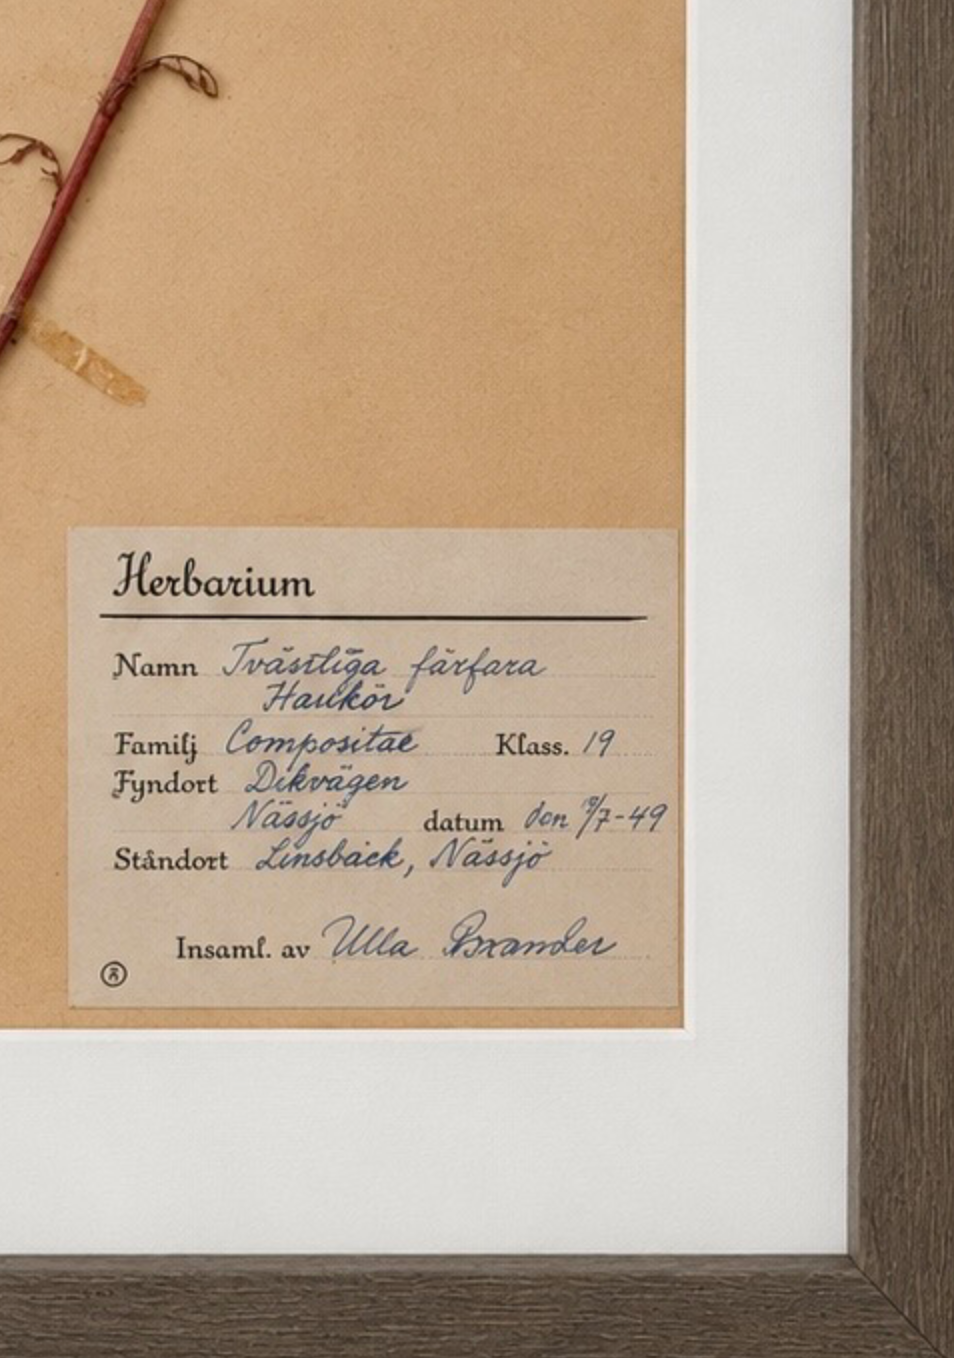 Herbarium
Namn Tvästliga färfara
Haukör
Familj Compositae Klass. 19
Fyndort Dikvägen
Nässjö datum den /7-49
Ståndort Linsbäck, Nässjö
Insaml. av Ulla Brander